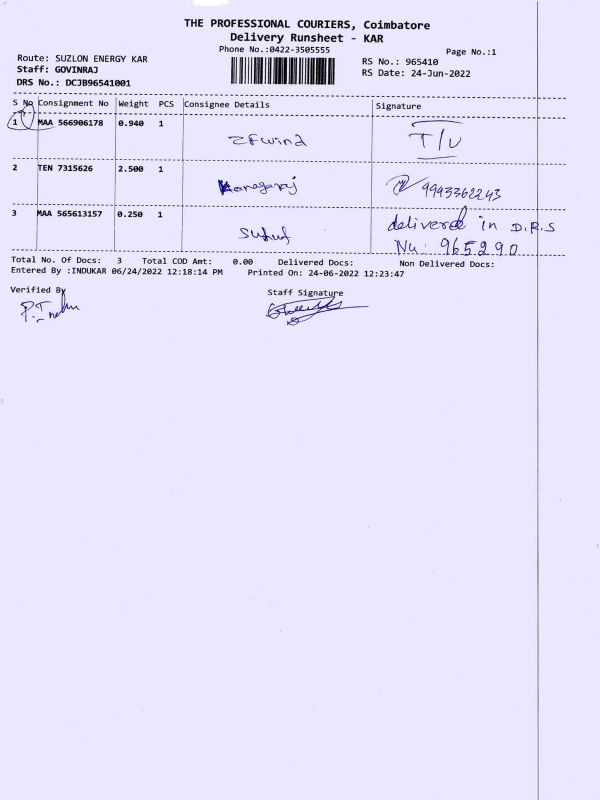 THE PROFESSIONAL COURIERS, Coimbatore
Delivery Runsheet - KAR
Phone No.:0422-3505555
Page No.:1
Route: SUZLON ENERGY KAR
RS No.: 965410
Staff: GOVINRAJ
RS Date: 24-Jun-2022
DRS No.: DCJB96541001
S No Consignment No Weight PCS Consignee Details Signature
1 MAA 566906178 0.940 1 ZFwind T/U
2 TEN 7315626 2.500 1 Kanagaraj 9943362243
3 MAA 565613157 0.250 1 delivered in D.R.S
No: 965290
Total No. Of Docs: 3 Total COD Amt: 0.00 Delivered Docs: Non Delivered Docs:
Entered By :INDUKAR 06/24/2022 12:18:14 PM Printed On: 24-06-2022 12:23:47
Verified By Staff Signature